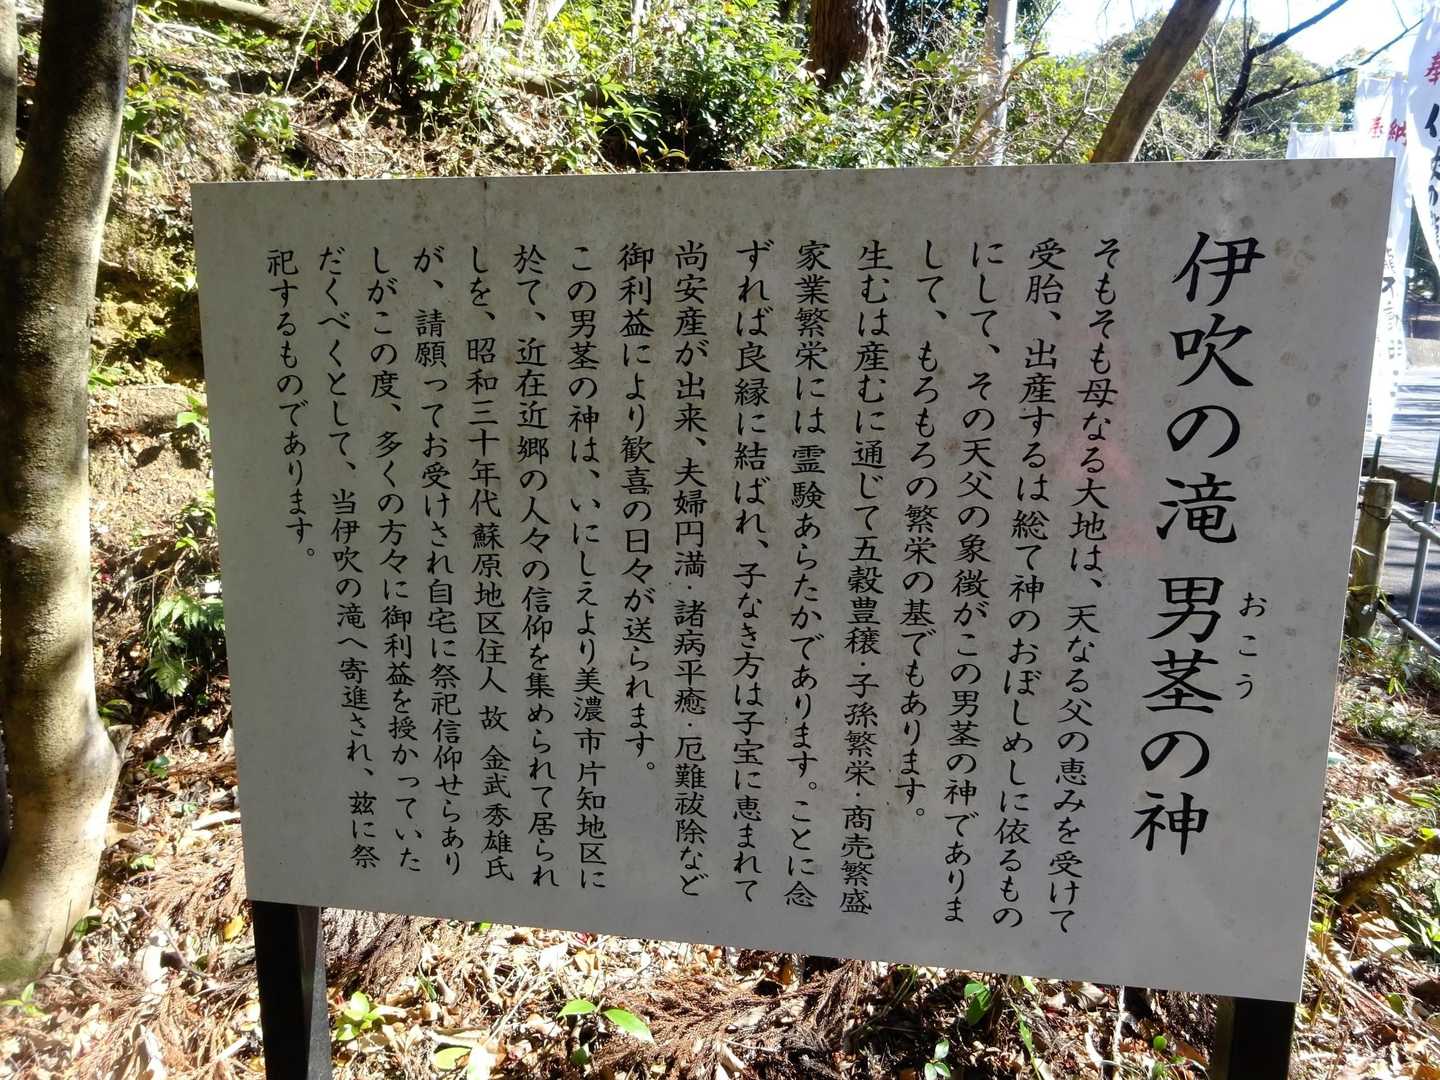 伊吹の滝 男茎の神
おこう
そもそも母なる大地は、天なる父の恵みを受けて
受胎、出産するは総て神のおぼしめしに依るもの
にして、その天父の象徴がこの男茎の神でありま
して、もろもろの繁栄の基でもあります。
生むは産むに通じて五穀豊穣・子孫繁栄・商売繁盛
家業繁栄には霊験あらたかであります。ことに念
ずれば良縁に結ばれ、子なき方は子宝に恵まれて
尚安産が出来、夫婦円満・諸病平癒・厄難祓除など
御利益により歓喜の日々が送られます。
この男茎の神は、いにしえより美濃市片知地区に
於て、近在近郷の人々の信仰を集められて居られ
しを、昭和三十年代蘇原地区住人 故 金武秀雄氏
が、請願ってお受けされ自宅に祭祀信仰せらあり
しがこの度、多くの方々に御利益を授かっていた
だくべくとして、当伊吹の滝へ寄進され、茲に祭
祀するものであります。